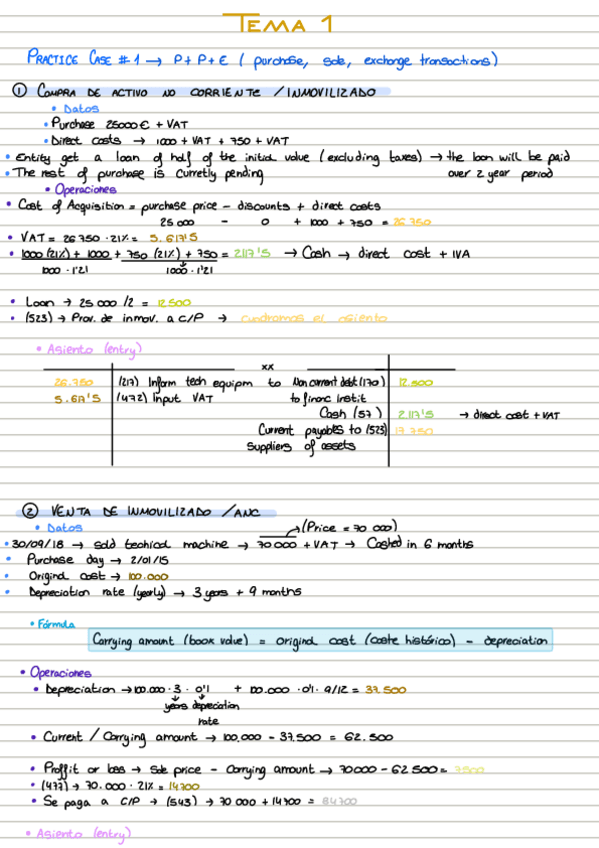 TEMA 1
PRACTICE CASE #1 → P+P+E ( purchase, sale, exchange transactions)
① COMPRA DE ACTIVO NO CORRIENTE / INMOVILIZADO
• Datos
• Purchase 25000€ + VAT
• Direct costs → 1000 + VAT + 750 + VAT
• Entity get a loan of half of the initial value (excluding taxes) → the loan will be paid
• The rest of purchase is curretly pending over 2 year period
• Operaciones
• Cost of Acquisition = purchase price - discounts + direct costs
25 000 - 0 + 1000 + 750 = 26.750
• VAT = 26 750 · 21% = 5.617'5
• 1000 (21%) + 1000 + 750 (21%) + 750 = 2117'5 → Cash → direct cost + IVA
1000 · 1'21 1000 · 1'21
• Loan → 25 000 /2 = 12.500
• (523) → Prov. de inmov. a C/P → cuadramos el asiento
• Asiento (entry)
xx
26.750 (217) Inform tech equipm to Non current debt (170) 12.500
5.617'5 (472) Input VAT to financ instit
Cash (57) 2.117'5 → direct cost + VAT
Current payables to (523) 17.750
suppliers of assets
② VENTA DE INMOVILIZADO / ANC
• Datos (Price = 70 000)
• 30/09/18 → sold techical machine → 70 000 + VAT → Cashed in 6 months
• Purchase day → 2/01/15
• Original cost → 100.000
• Depreciation rate (yearly) → 3 years + 9 months
• Fórmula
Carrying amount (book value) = original cost (coste histórico) - depreciation
• Operaciones
• Depreciation → 100.000 · 3 · 0'1 + 100.000 · 0'1 · 9/12 = 37.500
years depreciation
rate
• Current / Carrying amount → 100,000 - 37.500 = 62.500
• Proffit or loss → Sale price - Carrying amount → 70000 - 62 500 = 7500
• (477) → 70.000 · 21% = 14700
• Se paga a C/P → (543) → 70 000 + 14700 = 84700
• Asiento (entry)